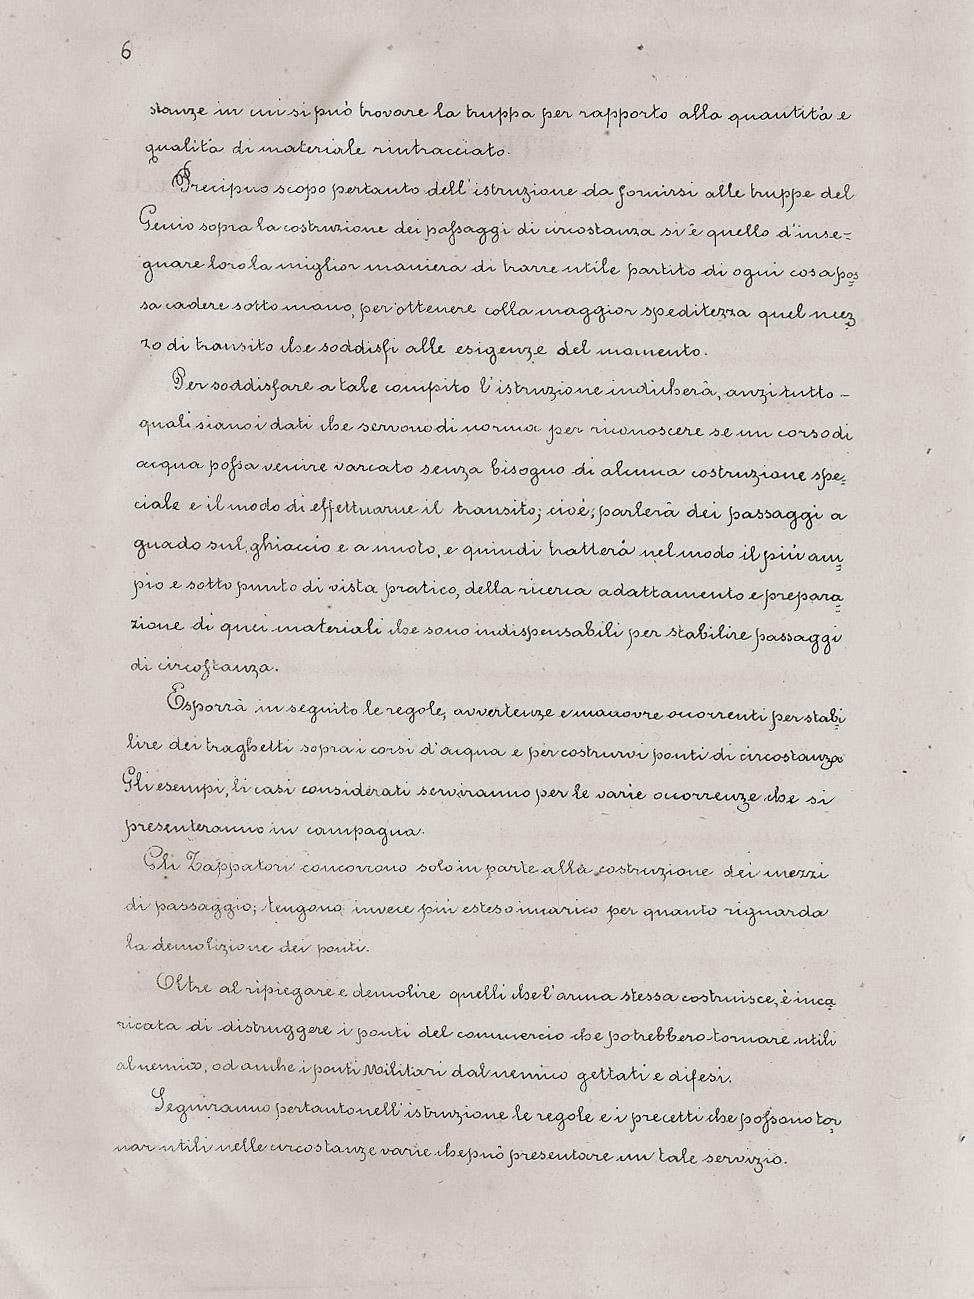 6
stanze in cui si può trovare la truppa per rapporto alla quantità e
qualità di materiale rintracciato.
Precipuo scopo pertanto dell'istruzione da fornirsi alle truppe del
Genio sopra la costruzione dei passaggi di circostanza si è quello d'inse=
gnare loro la miglior maniera di trarre utile partito di ogni cosa pos
sa cadere sotto mano, per ottenere colla maggior speditezza quel mez
zo di transito che soddisfi alle esigenze del momento.
Per soddisfare a tale compito l'istruzione indicherà, anzi tutto -
quali siano i dati che servono di norma per riconoscere se un corso di
acqua possa venire varcato senza bisogno di alcuna costruzione spe=
ciale e il modo di effettuarne il transito; cioè; parlerà dei passaggi a
guado sul ghiaccio e a nuoto, e quindi tratterà nel modo il più am=
pio e sotto punto di vista pratico, della ricerca adattamento e prepara=
zione di quei materiali che sono indispensabili per stabilire passaggi
di circostanza.
Esporrà in seguito le regole, avvertenze e manovre occorrenti per stabi=
lire dei traghetti sopra i corsi d'acqua e per costrurvi ponti di circostanza
Gli esempi, li casi considerati serviranno per le varie occorrenze che si
presenteranno in campagna.
Gli Zappatori concorrono solo in parte alla costruzione dei mezzi
di passaggio; tengono invece più esteso incarico per quanto riguarda
la demolizione dei ponti.
Oltre al ripiegare e demolire quelli che l'arma stessa costruisce, è inca=
ricata di distruggere i ponti del commercio che potrebbero tornare utili
al nemico, od anche i ponti Militari dal nemico gettati e difesi.
Seguiranno pertanto nell'istruzione le regole e i precetti che possono tor=
nar utili nelle circostanze varie che può presentare un tale servizio.